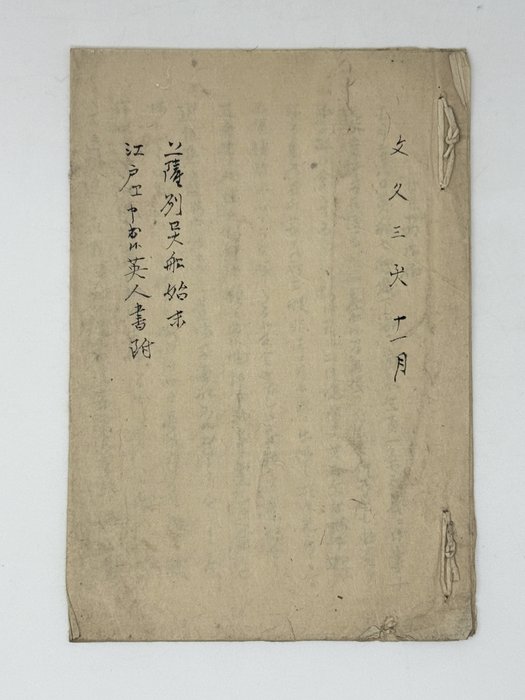 文久三亥十一月
薩州异船始末
江戸エ申出候英人書附